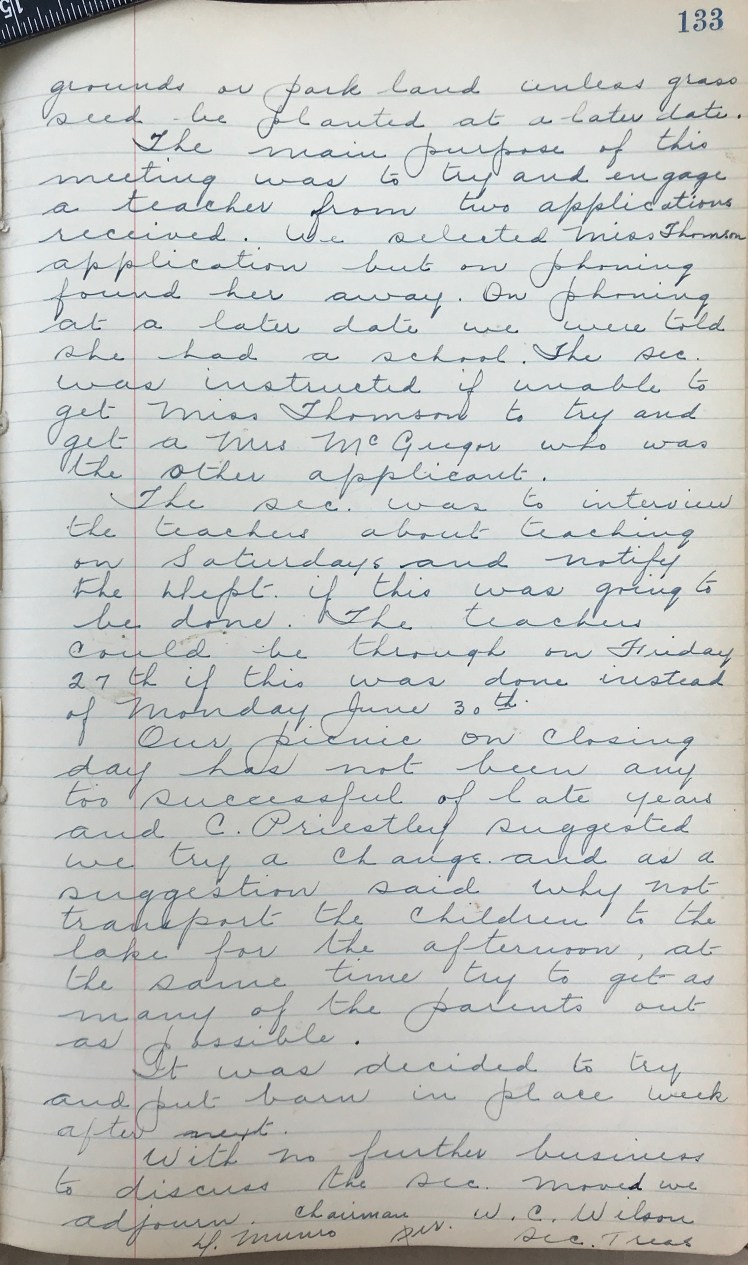 15
133
grounds or park land unless grass
seed be planted at a later date.
The main purpose of this
meeting was to try and engage
a teacher from two applications
received. We selected Miss Thomson
application but on phoning
found her away. On phoning
at a later date we were told
she had a school. The sec.
was instructed if unable to
get Miss Thomson to try and
get a Mrs McGregor who was
the other applicant.
The sec. was to interview
the teachers about teaching
on Saturdays and notify
the Dept. if this was going to
be done. The teachers
could be through on Friday
27th if this was done instead
of Monday June 30th.
Our picnic on closing
day has not been any
too successful of late years
and C. Priestley suggested
we try a change. and as a
suggestion said why not
transport the children to the
lake for the afternoon, at
the same time try to get as
many of the parents out
as possible.
It was decided to try
and put barn in place week
after next.
With no further business
to discuss the sec. moved we
adjourn. Chairman W. C. Wilson
Munro Sec. Treas